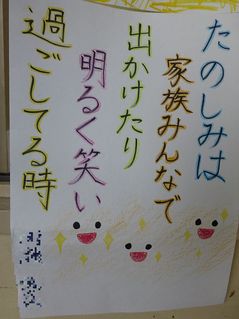 たのしみは
家族みんなで
出かけたり
明るく笑い
過ごしてる時